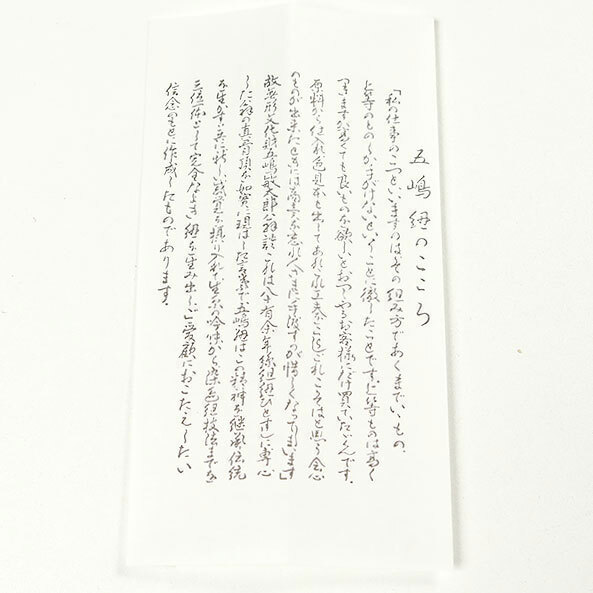 五嶋紐のこころ
「私の仕事のこつといいますのは、その組み方であくまでいいもの、
上等のものしかまがけないといふことに徹したことです。上等ものは高く
つきますが、高くても良いものを欲しいとおっしやるお客様にだけ買っていただくんです。
原料から仕入れ、色見本も出してあれこれ工夫をこらし、これこそはと思う会心
のものが出来たときには商売を忘れ、人さまに手渡すのが惜しくなってしまいます」
故無形文化財五嶋敏太郎翁談 これは八十有余年絲組紐ひとすじに専心
した翁の真骨頂を如実に現はした言葉で、五嶋紐はこの精神を継承、伝統
を生かすと共に新しい感覚を採り入れて生糸の吟味から染色組技法までを
三位一体として完全なよき紐を生み出しご愛顧におこたえしたい
信念のもとに作成したものであります。